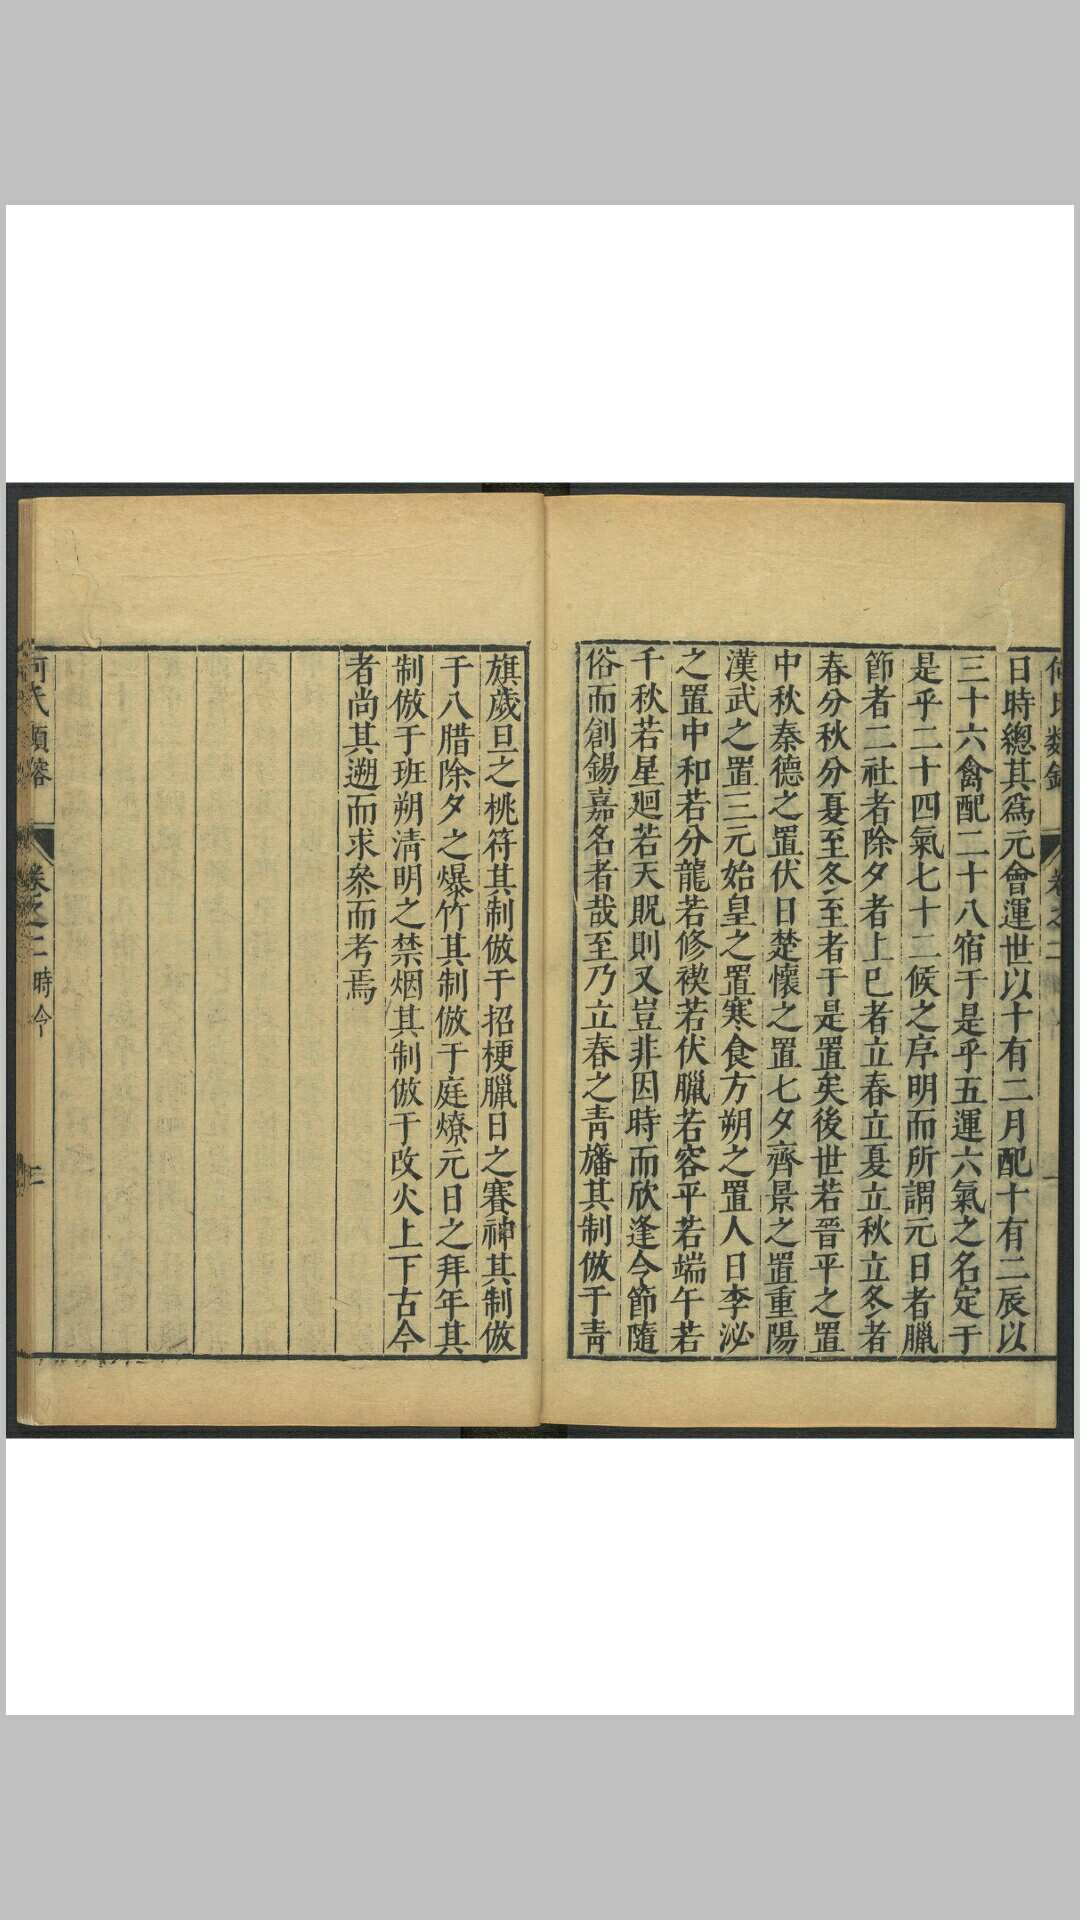 日時總其爲元會運世以十有二月配十有二辰以
三十六禽配二十八宿于是乎五運六氣之名定于
是乎二十四氣七十二候之序明而所謂元日者臘
節者二社者除夕者上巳者立春立夏立秋立冬者
春分秋分夏至冬至者于是置矣後世若晉平之置
中秋秦德之置伏日楚懷之置七夕齊景之置重陽
漢武之置三元始皇之置寒食方朔之置人日李泌
之置中和若分龍若修禊若伏臘若容平若端午若
千秋若星廻若天貺則又豈非因時而欣逢今節隨
俗而創錫嘉名者哉至乃立春之青旛其制倣于青
旗歲旦之桃符其制倣于招梗臘日之賽神其制倣
于八腊除夕之爆竹其制倣于庭燎元日之拜年其
制倣于班朔清明之禁烟其制倣于改火上下古今
者尚其遡而求叅而考焉
何氏類鎔
卷之二
時令
二